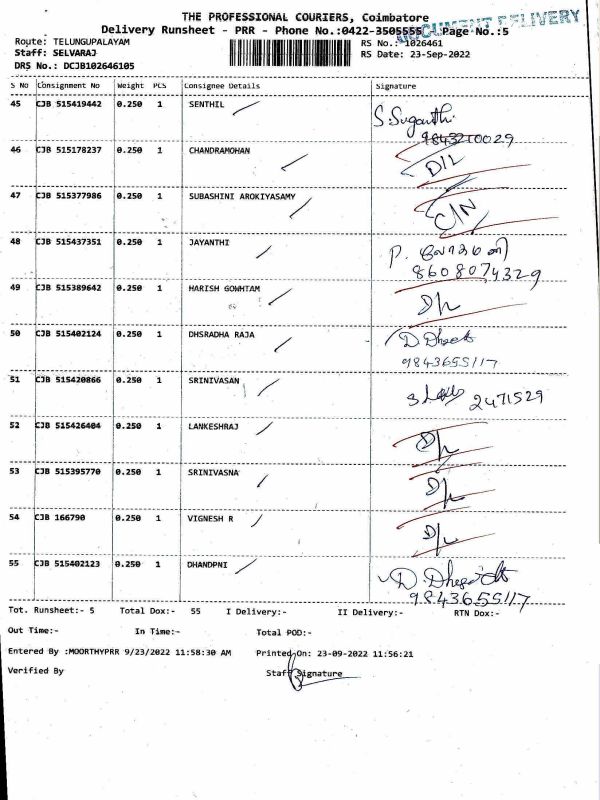 THE PROFESSIONAL COURIERS, Coimbatore
DOCUMENT DELIVERY
Delivery Runsheet - PRR - Phone No.:0422-3505555 Page No.:5
Route: TELUNGUPALAYAM RS No.: 1026461
Staff: SELVARAJ RS Date: 23-Sep-2022
DRS No.: DCJB102646105
S No Consignment No Weight PCS Consignee Details Signature
45 CJB 515419442 0.250 1 SENTHIL S.Suganthi
9843210029
46 CJB 515178237 0.250 1 CHANDRAMOHAN D/L
47 CJB 515377986 0.250 1 SUBASHINI AROKIYASAMY C/N
48 CJB 515437351 0.250 1 JAYANTHI P.
8608074329
49 CJB 515389642 0.250 1 HARISH GOWHTAM D/L
50 CJB 515402124 0.250 1 DHSRADHA RAJA D
9843655117
51 CJB 515420866 0.250 1 SRINIVASAN 2471529
52 CJB 515426404 0.250 1 LANKESHRAJ D/L
53 CJB 515395770 0.250 1 SRINIVASNA D/L
54 CJB 166790 0.250 1 VIGNESH R D/L
55 CJB 515402123 0.250 1 DHANDPNI D
9843655117
Tot. Runsheet:- 5 Total Dox:- 55 I Delivery:- II Delivery:- RTN Dox:-
Out Time:- In Time:- Total POD:-
Entered By :MOORTHYPRR 9/23/2022 11:58:30 AM Printed On: 23-09-2022 11:56:21
Verified By Staff Signature